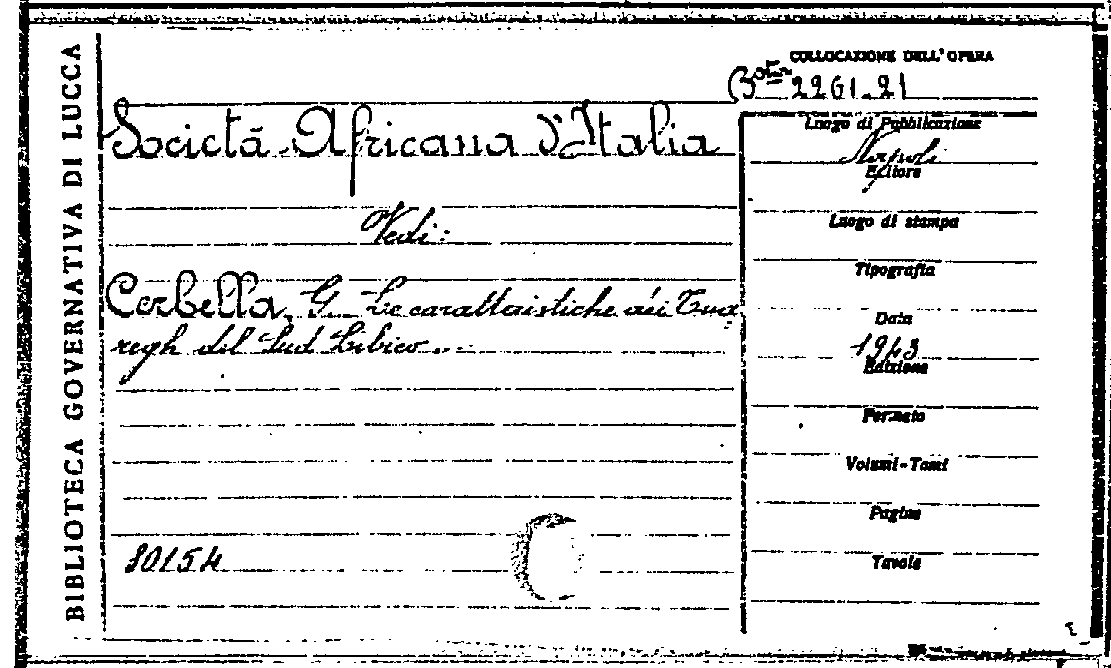 BIBLIOTECA GOVERNATIVA DI LUCCA
COLLOCAZIONE DELL'OPERA
2261.21
Società Africana d'Italia
Vedi:
Cerbella, G. Le caratteristiche dei Tua
regh del Sud Libico...
80154
Luogo di Pubblicazione
Napoli
Editore
Luogo di stampa
Tipografia
Data
1943
Edizione
Formato
Volumi-Tomi
Pagine
Tavole